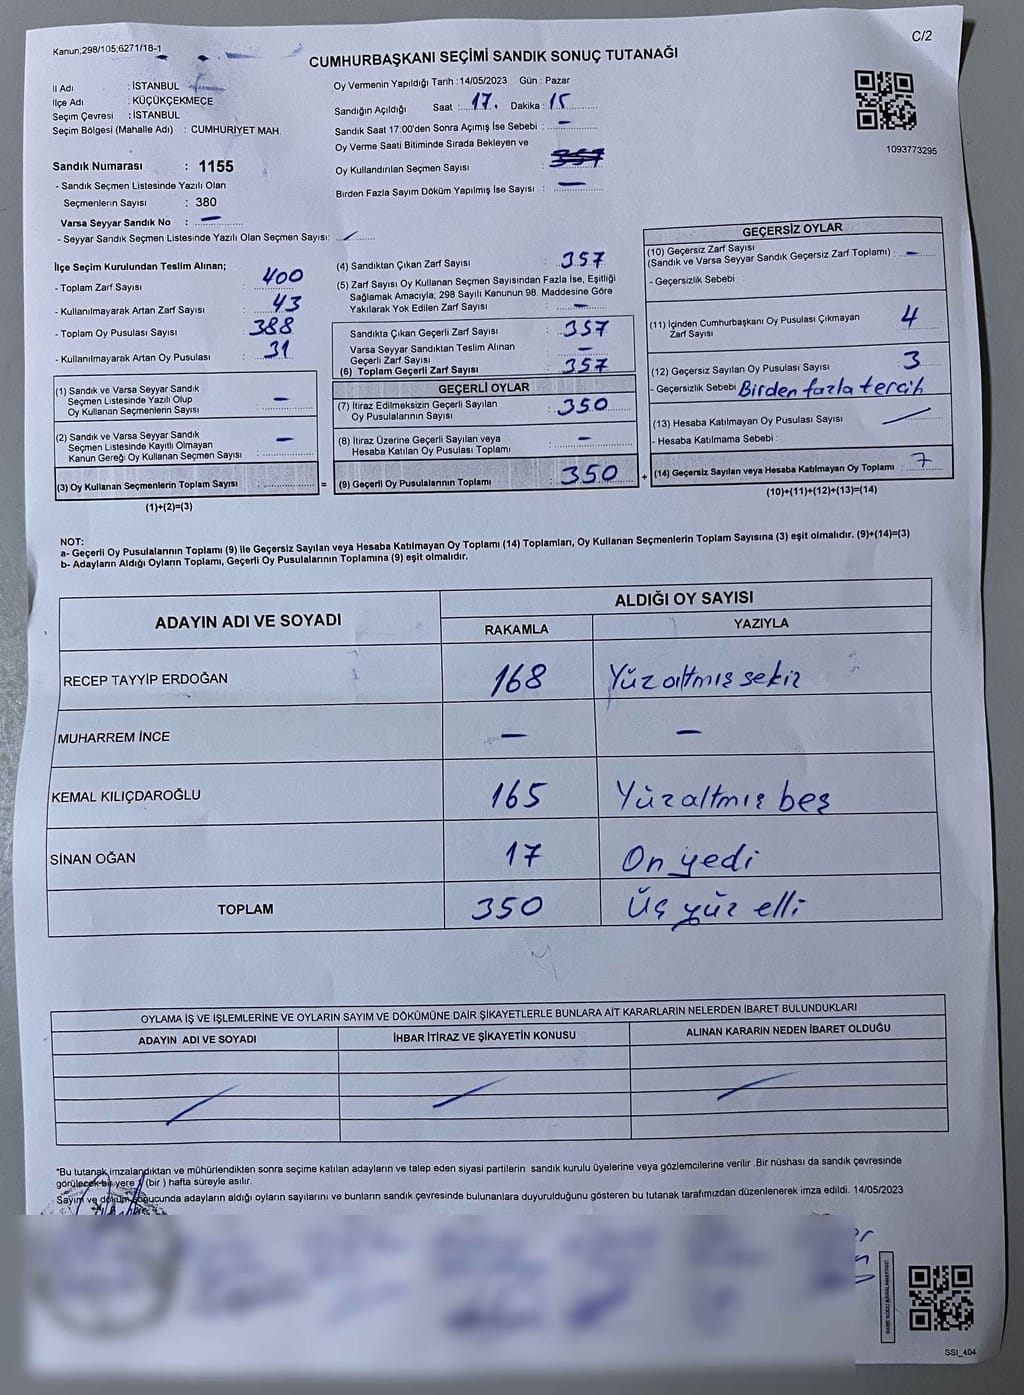 Kanun;298/105;6271/18-1
C/2
CUMHURBAŞKANI SEÇİMİ SANDIK SONUÇ TUTANAĞI
İl Adı : İSTANBUL
İlçe Adı : KÜÇÜKÇEKMECE
Seçim Çevresi : İSTANBUL
Seçim Bölgesi (Mahalle Adı) : CUMHURİYET MAH.
Sandık Numarası : 1155
- Sandık Seçmen Listesinde Yazılı Olan
Seçmenlerin Sayısı : 380
Varsa Seyyar Sandık No : —
- Seyyar Sandık Seçmen Listesinde Yazılı Olan Seçmen Sayısı:
Oy Vermenin Yapıldığı Tarih : 14/05/2023 Gün : Pazar
Sandığın Açıldığı Saat : 17. Dakika : 15
Sandık Saat 17:00'den Sonra Açımış İse Sebebi : —
Oy Verme Saati Bitiminde Sırada Bekleyen ve
Oy Kullandırılan Seçmen Sayısı : 357
Birden Fazla Sayım Döküm Yapılmış İse Sayısı : —
1093773295
İlçe Seçim Kurulundan Teslim Alınan;
- Toplam Zarf Sayısı : 400
- Kullanılmayarak Artan Zarf Sayısı : 43
- Toplam Oy Pusulası Sayısı : 388
- Kullanılmayarak Artan Oy Pusulası : 31
(1) Sandık ve Varsa Seyyar Sandık
Seçmen Listesinde Yazılı Olup
Oy Kullanan Seçmenlerin Sayısı : —
(2) Sandık ve Varsa Seyyar Sandık
Seçmen Listesinde Kayıtlı Olmayan
Kanun Gereği Oy Kullanan Seçmen Sayısı : —
(3) Oy Kullanan Seçmenlerin Toplam Sayısı :
(1)+(2)=(3)
(4) Sandıktan Çıkan Zarf Sayısı : 357
(5) Zarf Sayısı Oy Kullanan Seçmen Sayısından Fazla İse, Eşitliği
Sağlamak Amacıyla, 298 Sayılı Kanunun 98. Maddesine Göre
Yakılarak Yok Edilen Zarf Sayısı : —
Sandıkta Çıkan Geçerli Zarf Sayısı : 357
Varsa Seyyar Sandıktan Teslim Alınan
Geçerli Zarf Sayısı : —
(6) Toplam Geçerli Zarf Sayısı : 357
GEÇERLİ OYLAR
(7) İtiraz Edilmeksizin Geçerli Sayılan
Oy Pusulalarının Sayısı : 350
(8) İtiraz Üzerine Geçerli Sayılan veya
Hesaba Katılan Oy Pusulası Toplamı : —
= (9) Geçerli Oy Pusulalarının Toplamı : 350
GEÇERSİZ OYLAR
(10) Geçersiz Zarf Sayısı
(Sandık ve Varsa Seyyar Sandık Geçersiz Zarf Toplamı) : —
- Geçersizlik Sebebi :
(11) İçinden Cumhurbaşkanı Oy Pusulası Çıkmayan
Zarf Sayısı : 4
(12) Geçersiz Sayılan Oy Pusulası Sayısı : 3
- Geçersizlik Sebebi : Birden fazla tercih
(13) Hesaba Katılmayan Oy Pusulası Sayısı
- Hesaba Katılmama Sebebi :
+ (14) Geçersiz Sayılan veya Hesaba Katılmayan Oy Toplamı : 7
(10)+(11)+(12)+(13)=(14)
NOT:
a- Geçerli Oy Pusulalarının Toplamı (9) ile Geçersiz Sayılan veya Hesaba Katılmayan Oy Toplamı (14) Toplamları, Oy Kullanan Seçmenlerin Toplam Sayısına (3) eşit olmalıdır. (9)+(14)=(3)
b- Adayların Aldığı Oyların Toplamı, Geçerli Oy Pusulalarının Toplamına (9) eşit olmalıdır.
ADAYIN ADI VE SOYADI
ALDIĞI OY SAYISI
RAKAMLA YAZIYLA
RECEP TAYYİP ERDOĞAN 168 Yüz altmış sekiz
MUHARREM İNCE — —
KEMAL KILIÇDAROĞLU 165 Yüz altmış beş
SİNAN OĞAN 17 On yedi
TOPLAM 350 Üç yüz elli
OYLAMA İŞ VE İŞLEMLERİNE VE OYLARIN SAYIM VE DÖKÜMÜNE DAİR ŞİKAYETLERLE BUNLARA AİT KARARLARIN NELERDEN İBARET BULUNDUKLARI
ADAYIN ADI VE SOYADI İHBAR İTİRAZ VE ŞİKAYETİN KONUSU ALINAN KARARIN NEDEN İBARET OLDUĞU
*Bu tutanak imzalandıktan ve mühürlendikten sonra seçime katılan adayların ve talep eden siyasi partilerin sandık kurulu üyelerine veya gözlemcilerine verilir .Bir nüshası da sandık çevresinde
görülecek bir yere 1 (bir ) hafta süreyle asılır.
Sayım ve döküm sonucunda adayların aldığı oyların sayılarını ve bunların sandık çevresinde bulunanlara duyurulduğunu gösteren bu tutanak tarafımızdan düzenlenerek imza edildi. 14/05/2023
SSI_404